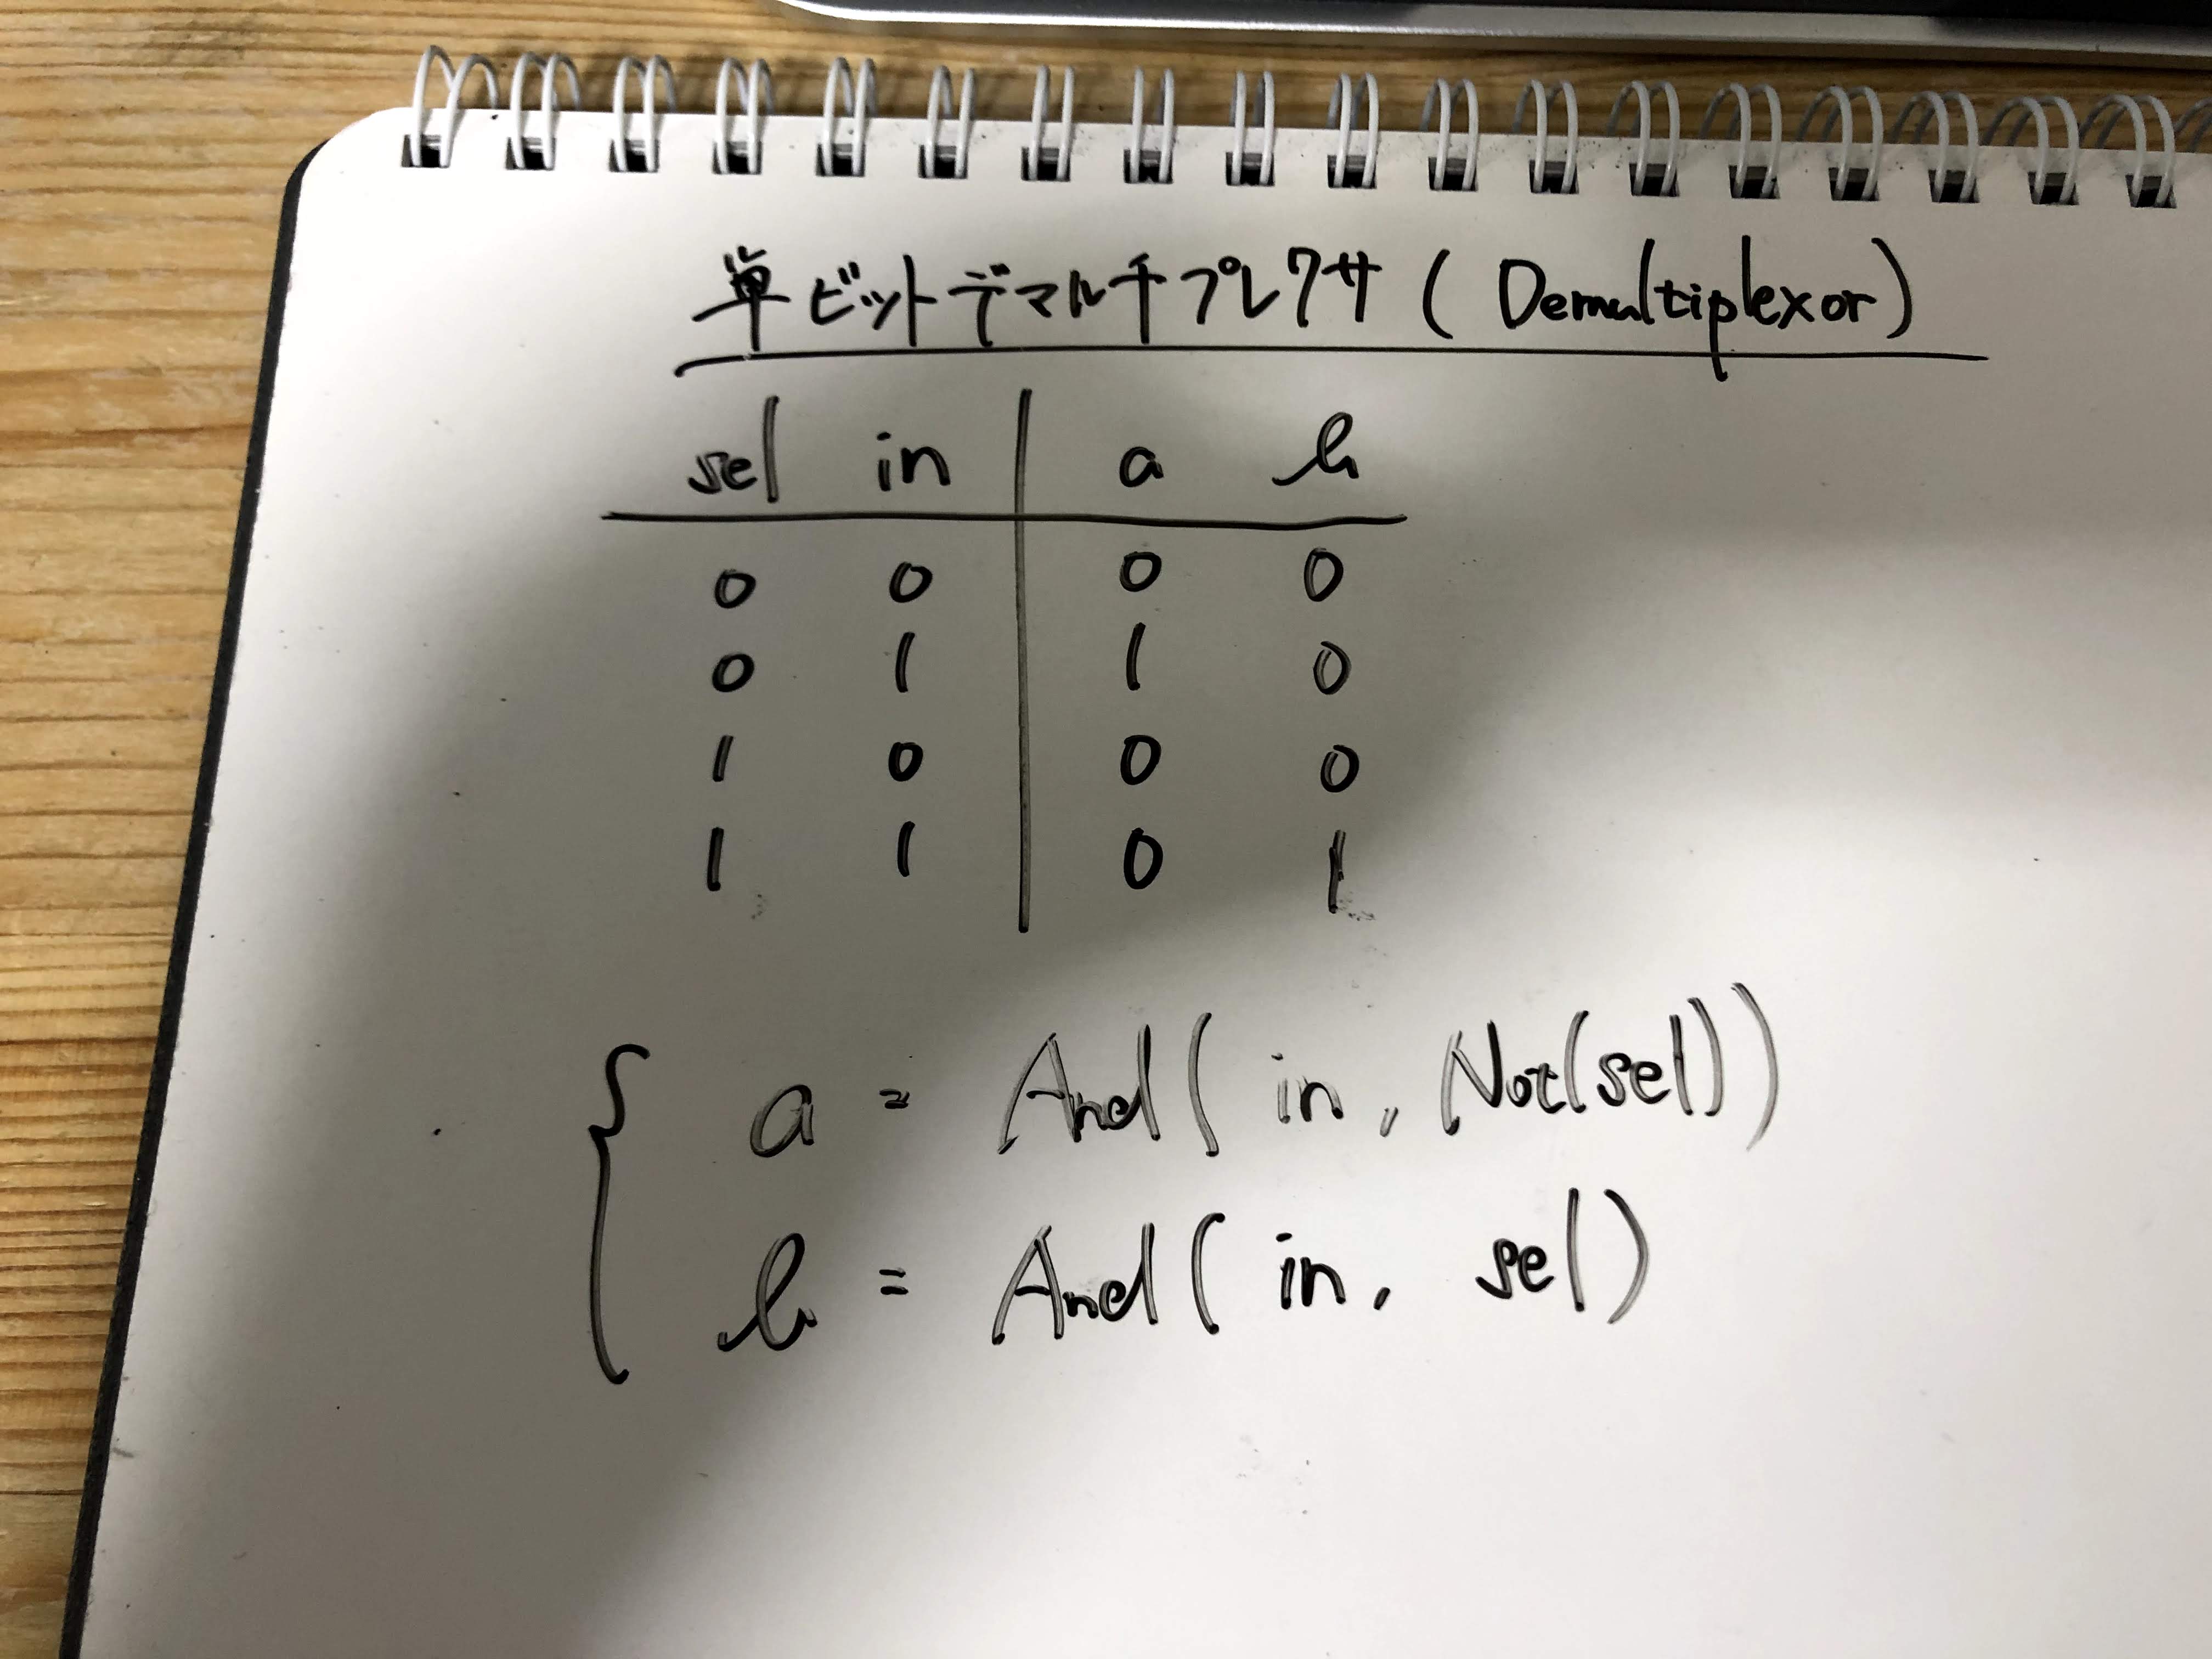 単ビットデマルチプレクサ ( Demultiplexor )
sel in a b
0 0 0 0
0 1 1 0
1 0 0 0
1 1 0 1
a = And( in , Not(sel))
b = And( in, sel)